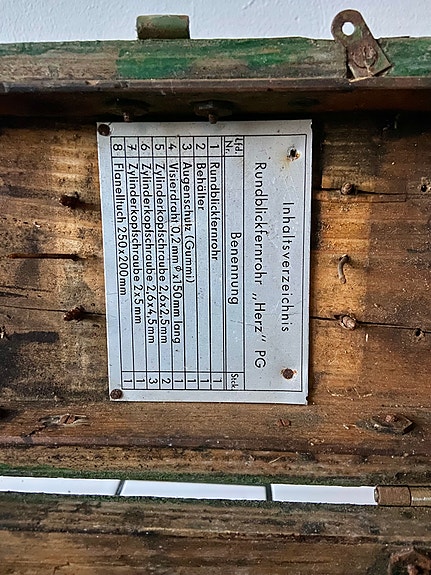 Inhaltsverzeichnis
Rundblickfernrohr „Herz" PG
Lfd. Nr. Benennung Stck.
1 Rundblickfernrohr 1
2 Behälter 1
3 Augenschutz (Gummi) 1
4 Visierdraht 0,2 mm ⌀ x 150 mm lang 1
5 Zylinderkopfschraube 2,6x2,5 mm 2
6 Zylinderkopfschraube 2,6x4,5 mm 3
7 Zylinderkopfschraube 2x5 mm 1
8 Flanelltuch 250x200 mm 1